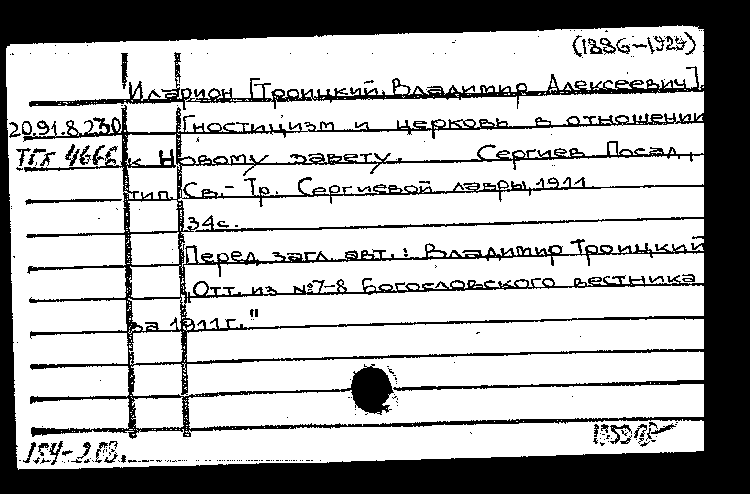 (1886-1929)
Иларион [Троицкий, Владимир Алексеевич].
20.91.8.230 Гностицизм и церковь в отношении
ТГК 4666 к Новому завету. Сергиев Посад,
тип. Св.-Тр. Сергиевой лавры, 1911.
34с.
Перед загл. авт.: Владимир Троицкий
"Отт. из №7-8 Богословского вестника
за 1911г."
184-2.08.